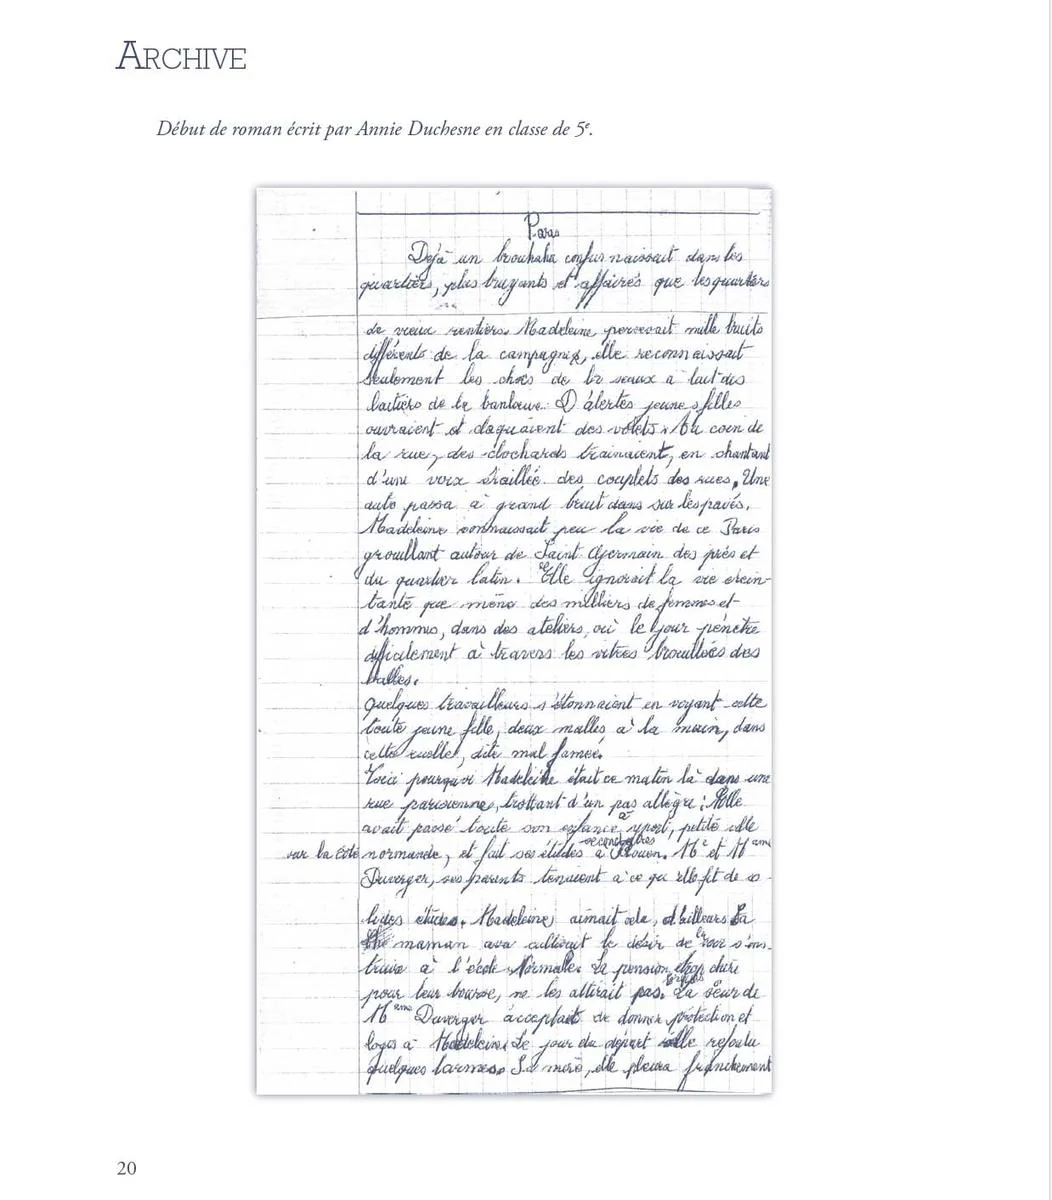 ARCHIVE
Début de roman écrit par Annie Duchesne en classe de 5e.
Paris
Déjà un brouhaha confus naissait dans les
quartiers, plus bruyants et affairés que les quartiers
de vieux rentiers. Madeleine percevait mille bruits
différents de la campagne, elle reconnaissait
seulement les chocs de seaux à lait des
laitiers de la banlieue. D'alertes jeunes filles
ouvraient et claquaient des volets. Au coin de
la rue, des clochards trainaient, en chantant
d'une voix éraillée des couplets des rues. Une
auto passa à grand bruit dans sur les pavés.
Madeleine connaissait peu la vie de ce Paris
grouillant autour de Saint Germain des prés et
du quartier latin. Elle ignorait la vie érein-
tante que mène des milliers de femmes et
d'hommes, dans des ateliers, où le jour pénètre
difficilement à travers les vitres brouillées des
halles.
Quelques travailleurs s'étonnaient en voyant cette
toute jeune fille, deux malles à la main, dans
cette ruelle, dite mal famée.
Voici pourquoi Madeleine était ce matin là dans une
rue parisienne, trottant d'un pas allègre : Elle
avait passé toute son enfance à yport, petite ville
sur la côte normande, et fait ses études secondaires à Rouen. Mr et Mame
Duverger, ses parents tenaient à ce qu'elle fit de so-
lides études. Madeleine aimait cela, d'ailleurs Sa
maman cultivait le désir de la voir s'ins-
truire à l'école Normale. La pension trop chère
pour leur bourse, ne les attirait pas. La sœur de
Mame Duverger acceptait de donner protection et
logis à Madeleine. Le jour du départ elle refoula
quelques larmes. Sa mère, elle pleura franchement
20